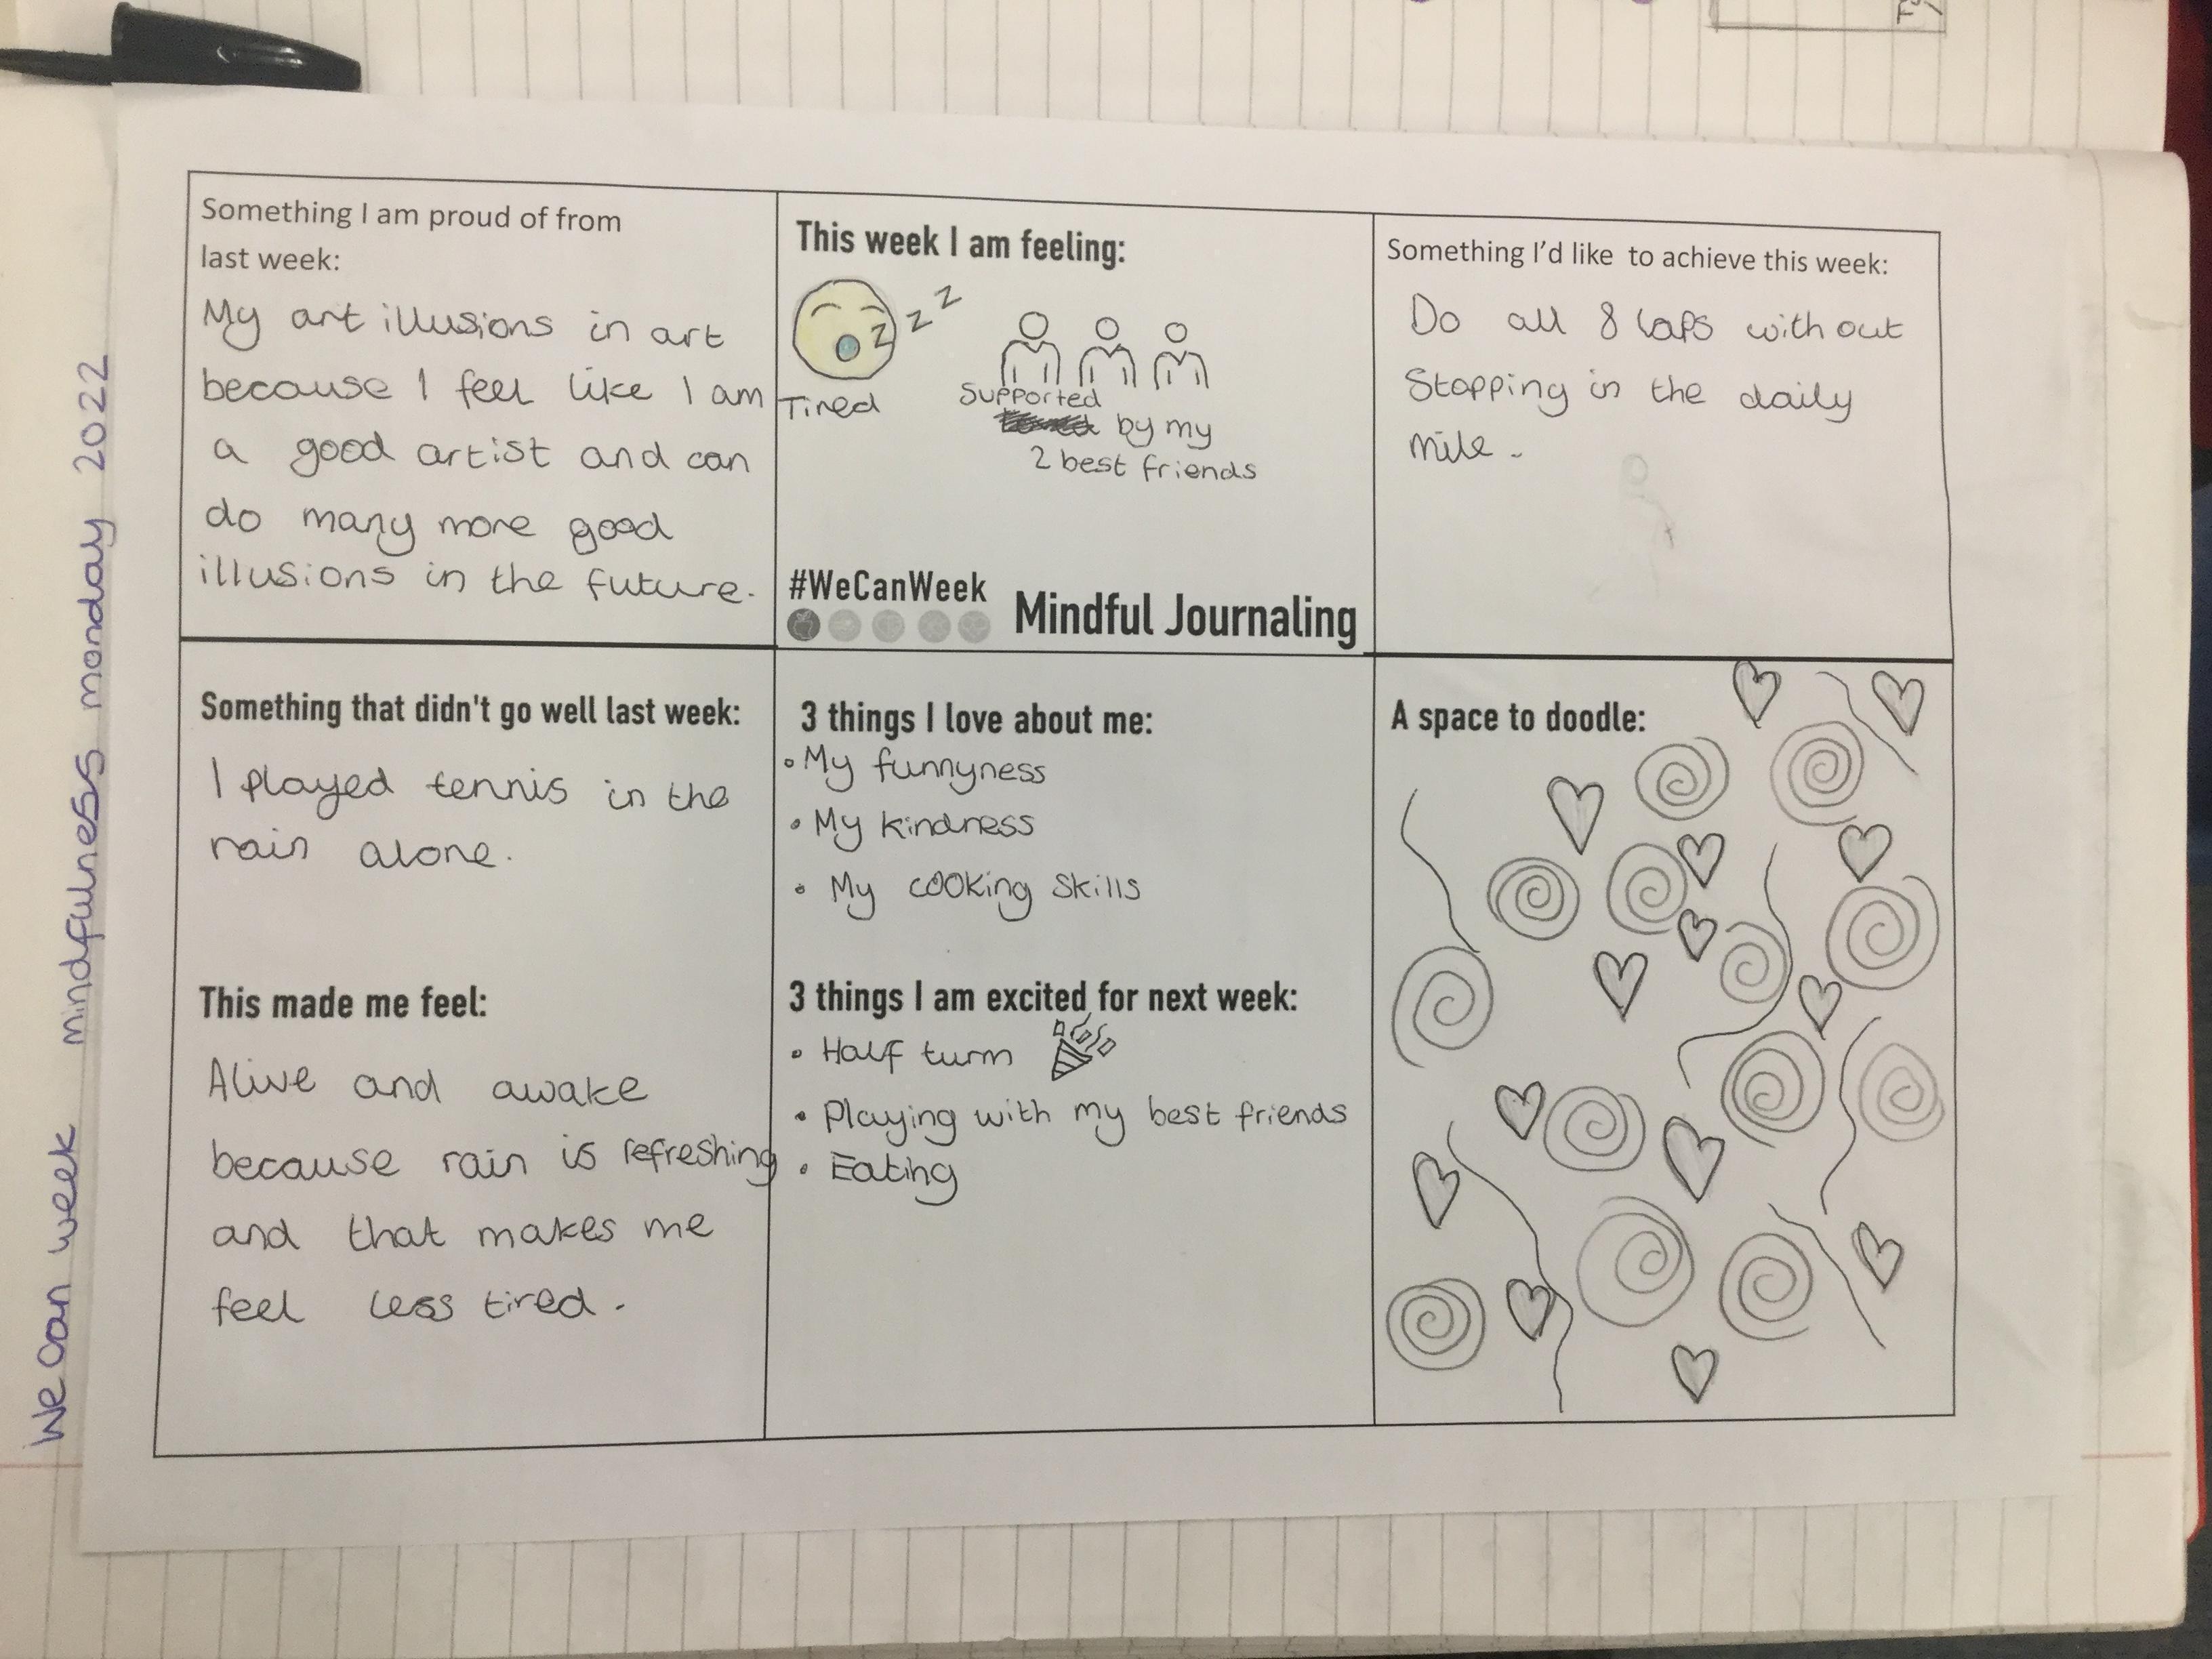 We can week mindfulness monday 2022
Something I am proud of from
last week:
My art illusions in art
because I feel like I am
a good artist and can
do many more good
illusions in the future.
This week I am feeling:
z z z
Tired
Supported
by my
2 best friends
#WeCanWeek
Mindful Journaling
Something I'd like to achieve this week:
Do all 8 laps with out
Stopping in the daily
mile.
Something that didn't go well last week:
I played tennis in the
rain alone.
This made me feel:
Alive and awake
because rain is refreshing
and that makes me
feel less tired.
3 things I love about me:
• My funnyness
• My kindness
• My cooking skills
3 things I am excited for next week:
• Half turm
• Playing with my best friends
• Eating
A space to doodle: